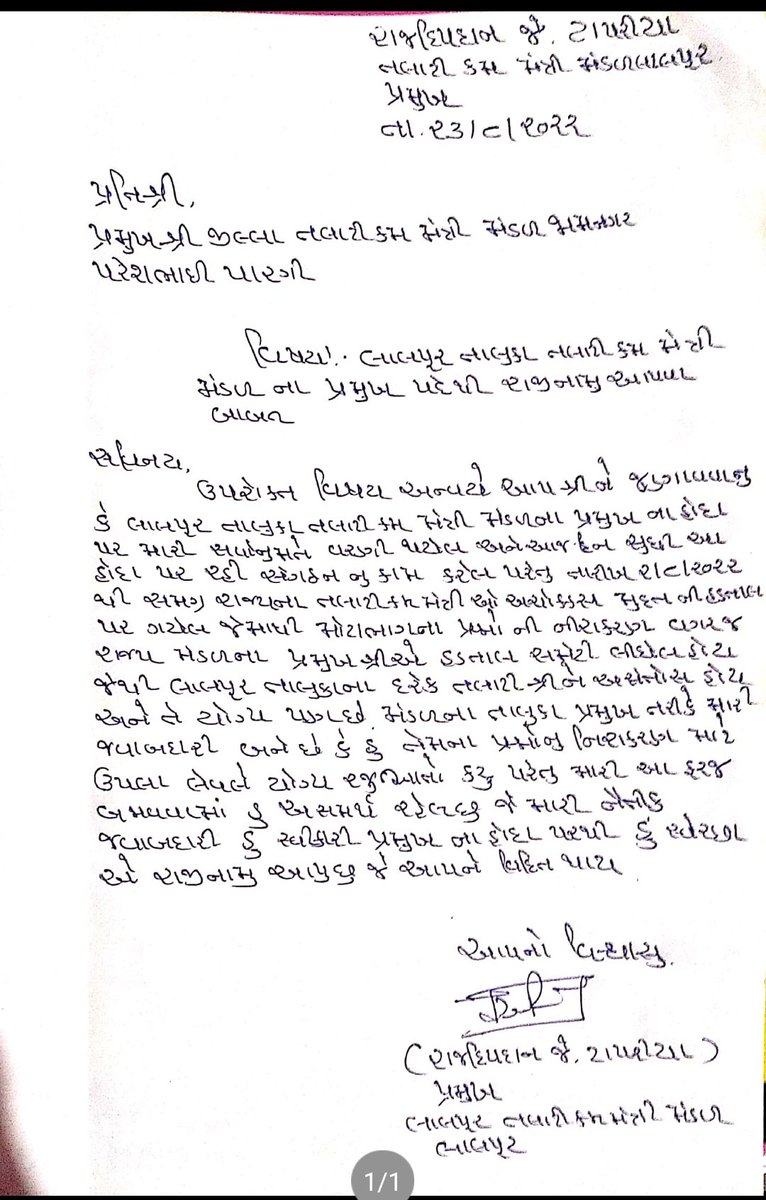 રાજદિપદાન જે. ટાપરીયા
તલાટી કમ મંત્રી મંડળ લાલપુર
પ્રમુખ
તા. ૨૩/૮/૨૦૨૨
પ્રતિશ્રી,
પ્રમુખ શ્રી જીલ્લા તલાટી કમ મંત્રી મંડળ જામનગર
પરેશભાઈ પારગી
વિષય:. લાલપુર તાલુકા તલાટી કમ મંત્રી
મંડળ ના પ્રમુખ પદેથી રાજીનામુ આપવા
બાબત
સવિનય,
ઉપરોક્ત વિષય અન્વયે આપશ્રીને જણાવવાનુ
કે લાલપુર તાલુકા તલાટી કમ મંત્રી મંડળના પ્રમુખ ના હોદા
પર મારી સર્વાનુમતે વરણી થયેલ અને આજ દિન સુધી આ
હોદા પર રહી સંગઠન નુ કામ કરેલ પરંતુ તારીખ ૨/૮/૨૦૨૨
થી સમગ્ર રાજ્યના તલાટી કમ મંત્રી ઓ અચોક્કસ મુદત ની હડતાલ
પર ગયેલ જેમાથી મોટાભાગના પ્રશ્નો ની નીરાકરણ વગર જ
રાજય મંડળના પ્રમુખ શ્રીએ હડતાલ સમેટી લીધેલ હોય
જેથી લાલપુર તાલુકાના દરેક તલાટી શ્રીને અસંતોસ હોય
અને તે યોગ્ય પણ છે. મંડળના તાલુકા પ્રમુખ તરીકે મારી
જવાબદારી બને છે કે હું તેમના પ્રશ્નોનુ નિરાકરણ માટે
ઉપલા લેવલે યોગ્ય રજુઆતો કરૂ પરંતુ મારી આ ફરજ
બજાવવામાં હુ અસમર્થ રહેલ છુ જે મારી નૈતીક
જવાબદારી હું સ્વીકારી પ્રમુખ ના હોદા પરથી હું સ્વેચ્છા
એ રાજીનામુ આપુ છુ જે આપને વિદિત થાય
આપનો વિશ્વાસુ.
(રાજદિપદાન જે. ટાપરીયા)
પ્રમુખ
લાલપુર તલાટી કમ મંત્રી મંડળ
લાલપુર
1/1